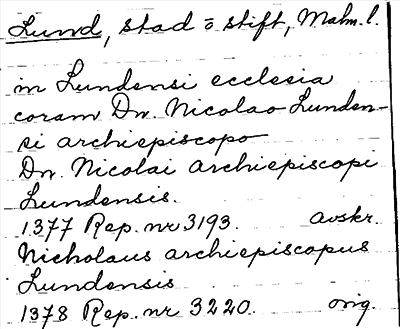 Lund, stad o stift, Malm. l.
in Lundensi ecclesia
coram Dn. Nicolao Lunden-
si archiepiscopo
Dn. Nicolai archiepiscopi
Lundensis.
1377 Rep. nr 3193. avskr.
Nicholaus archiepiscopus
Lundensis
1378 Rep. nr 3220. orig.